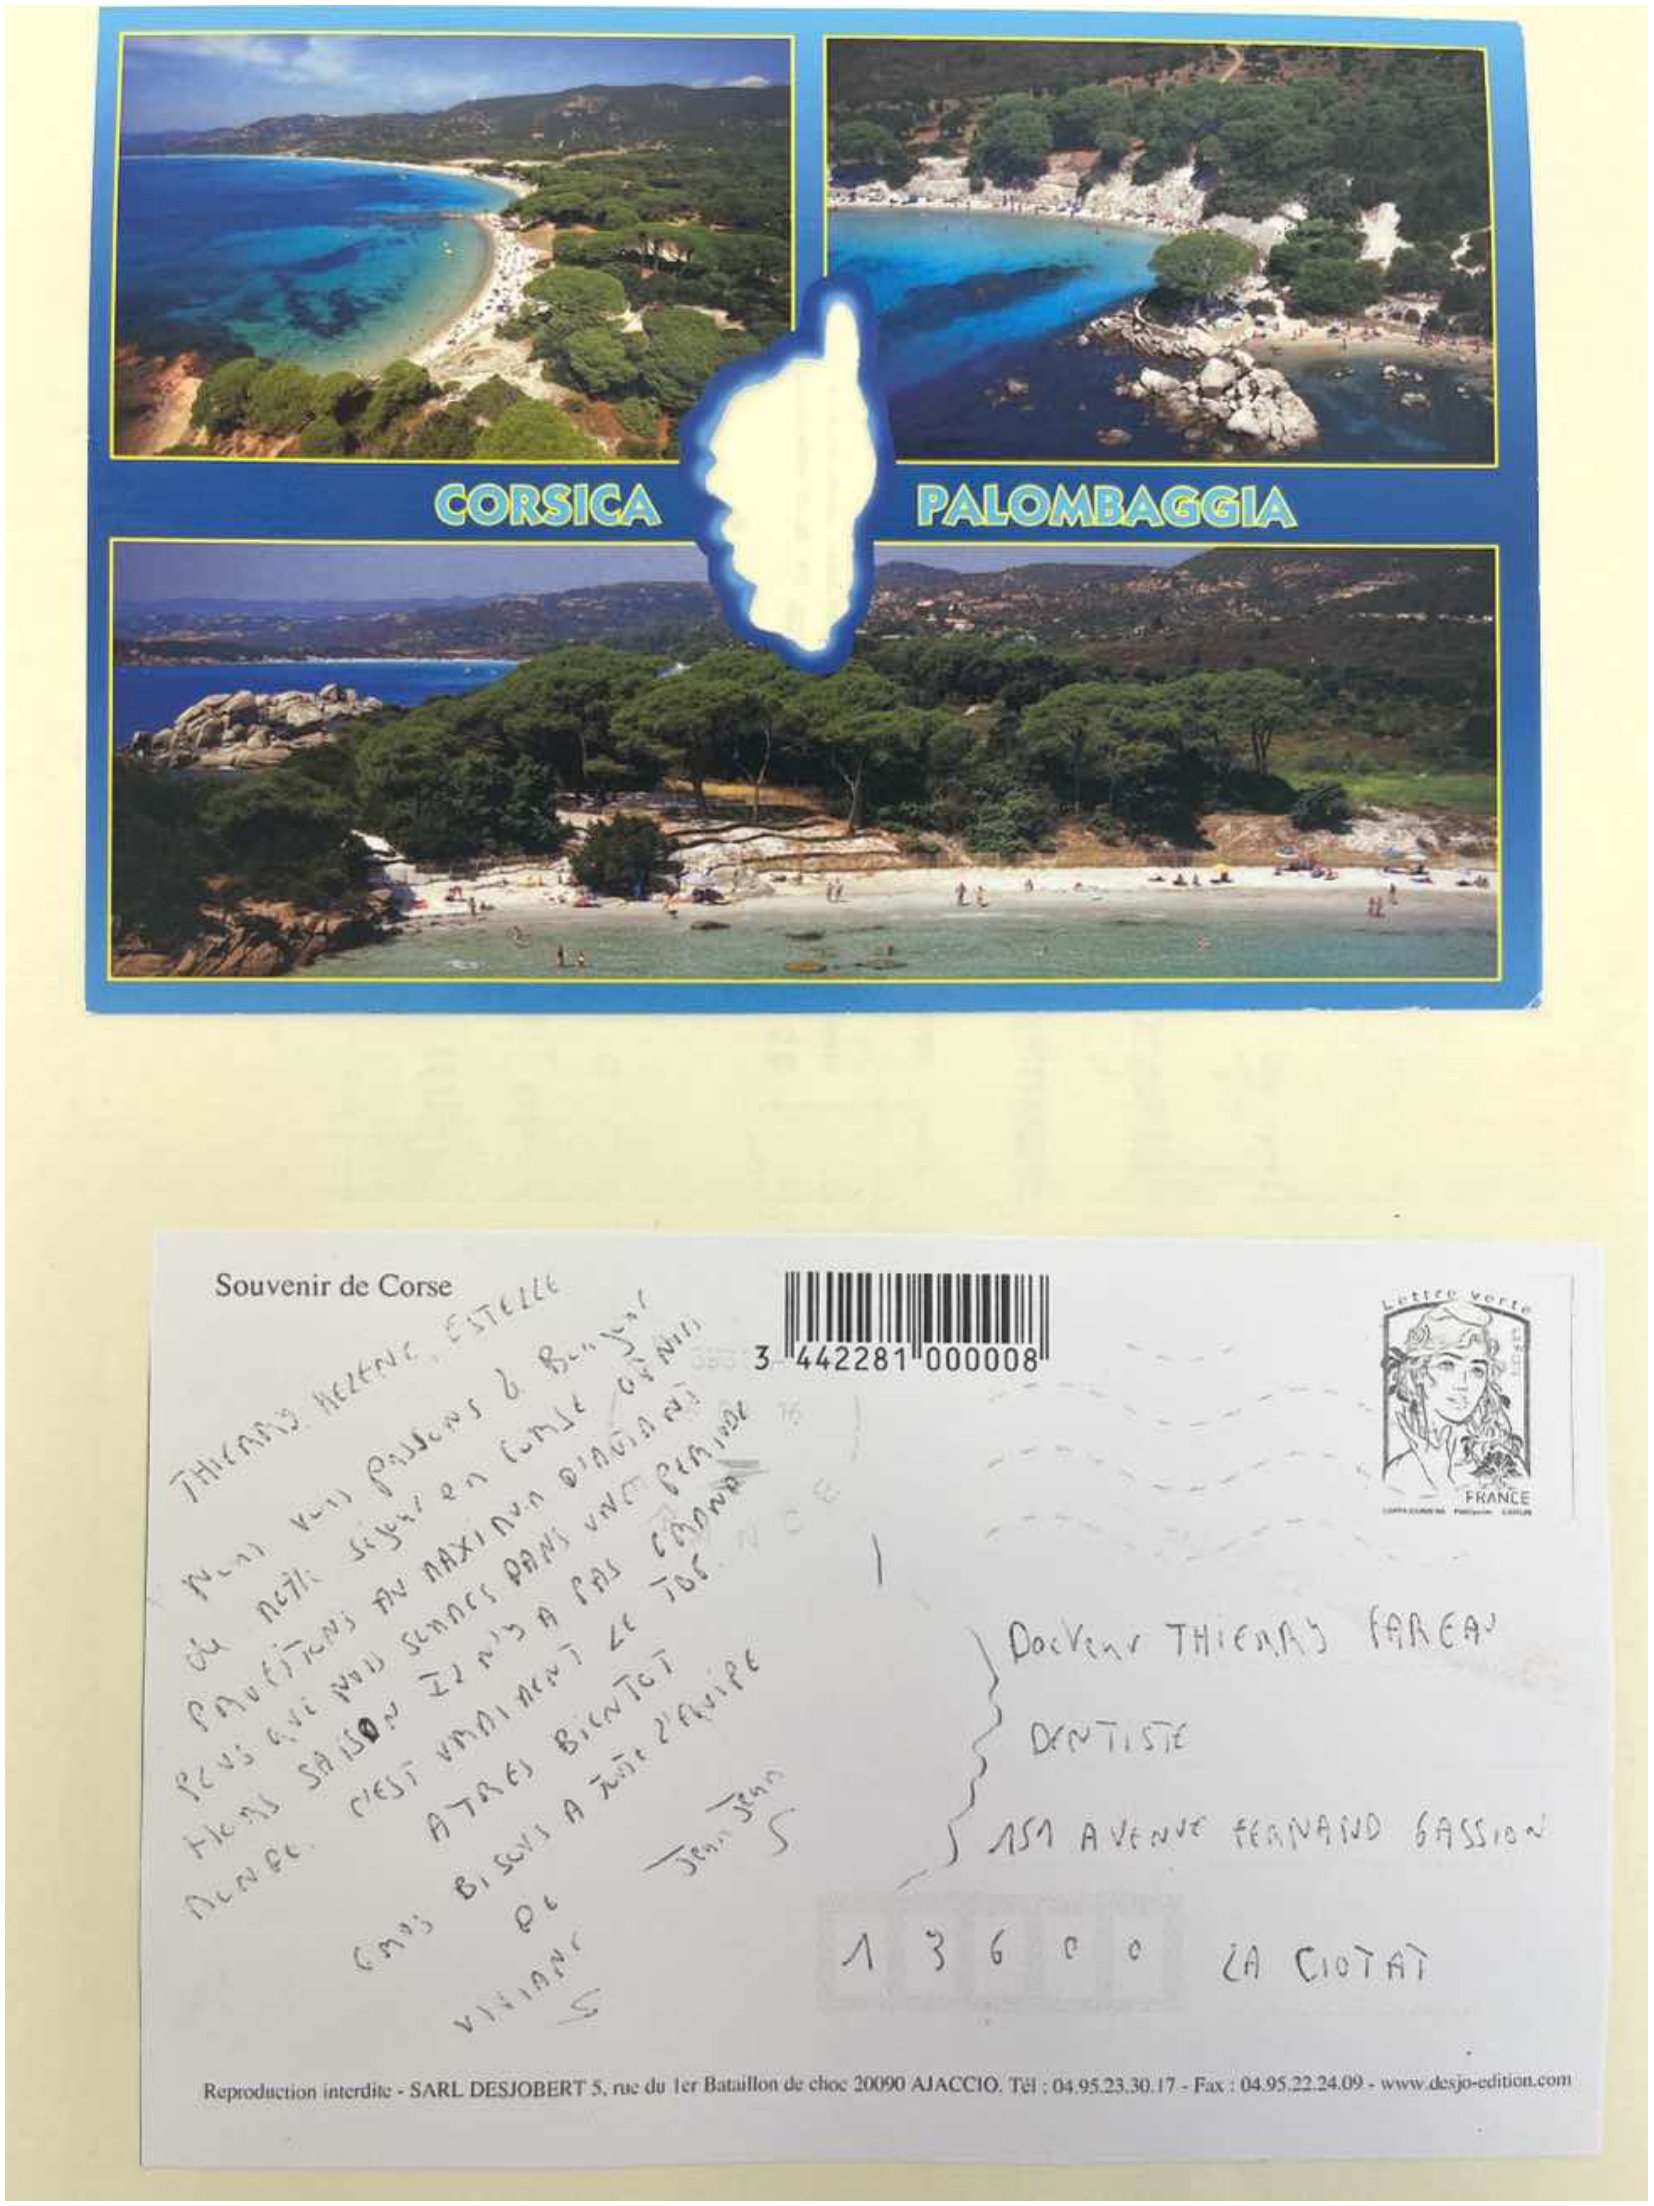 CORSICA
PALOMBAGGIA
Souvenir de Corse
THIERRY. HELENE, ESTELLE
Nous vous passons le Bonjour
de notre séjour en CORSE OU NOUS
PROFITONS AU MAXIMUM D'AUTANT
PLUS QUE NOUS SOMMES DANS UNE PERIODE
HORS SAISON IL N'Y A PAS GRAND
MONDE. C'EST VRAIMENT LE TOP.
A TRES BIENTOT
GROS BISOUS A TOUTE L'EQUIPE
DE
VIVIANE
Jean Jean
3 442281 000008
Lettre verte
FRANCE
Docteur THIERRY FAREAU
DENTISTE
151 AVENUE FERNAND GASSION
13600 LA CIOTAT
Reproduction interdite - SARL DESJOBERT 5, rue du 1er Bataillon de choc 20090 AJACCIO. Tél : 04.95.23.30.17 - Fax : 04.95.22.24.09 - www.desjo-edition.com